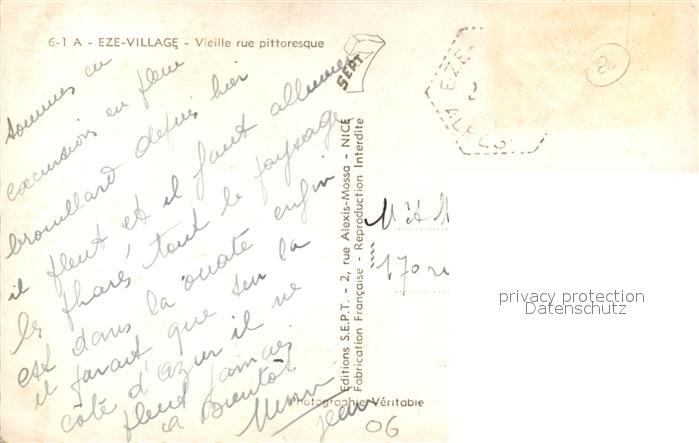 6-1 A - EZE-VILLAGE - Vieille rue pittoresque
sommes en
excursion en plein
brouillard depuis hier
il pleut et il faut allumer
les phares, tout le paysage
est dans la ouate enfin
il parait que sur la
côte d'azur il ne
pleut jamais
a Bientôt
Jean
SEPT
Editions S.E.P.T. - 2, rue Alexis-Mossa - NICE
Fabrication Française - Reproduction Interdite
Photographie Véritable
EZE-
ALPES
20
M et M
170 r
privacy protection
Datenschutz
06